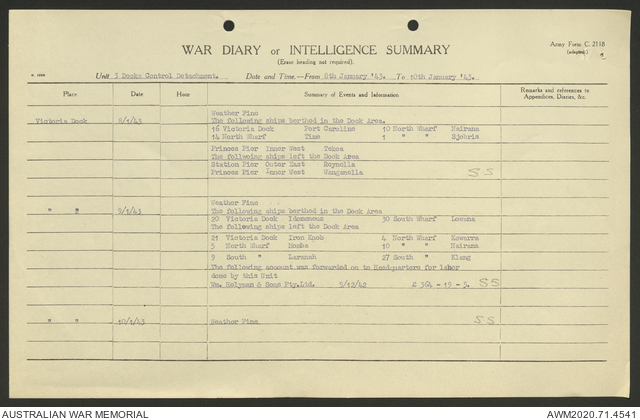 Army Form C. 2118
(adapted)
WAR DIARY or INTELLIGENCE SUMMARY
(Erase heading not required).
Unit 3 Docks Control Detachment. Date and Time.—From 8th January '43. To 10th January '43.
Place Date Hour Summary of Events and Information Remarks and references to
Appendices, Diaries, &c.
Weather Fine
Victoria Dock 8/1/43 The following ships berthed in the Dock Area.
16 Victoria Dock Port Caroline 10 North Wharf Nairana
14 North Wharf Time 1 " " Sjobris
Princes Pier Inner West Tekoa
The following ships left the Dock Area
Station Pier Outer East Reynella
Princes Pier Inner West Wanganella SS
Weather Fine
" " 9/1/43 The following ships berthed in the Dock Area
20 Victoria Dock Idomeneus 30 South Wharf Lowana
The following ships left the Dock Area
21 Victoria Dock Iron Knob 4 North Wharf Kowarra
5 North Wharf Momba 10 " " Nairana
9 South " Laranah 27 South " Klang
The following account was forwarded on to Headquarters for labor
done by this Unit
Wm. Holyman & Sons Pty.Ltd. 5/12/42 £ 364 - 19 - 9. SS
" " 10/1/43 Weather Fine SS
AUSTRALIAN WAR MEMORIAL AWM2020.71.4541